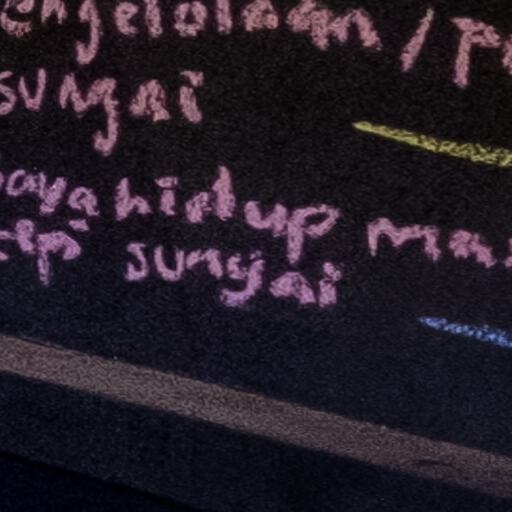 engelolaan / P
sungai
aya hidup mas
tepi sungai